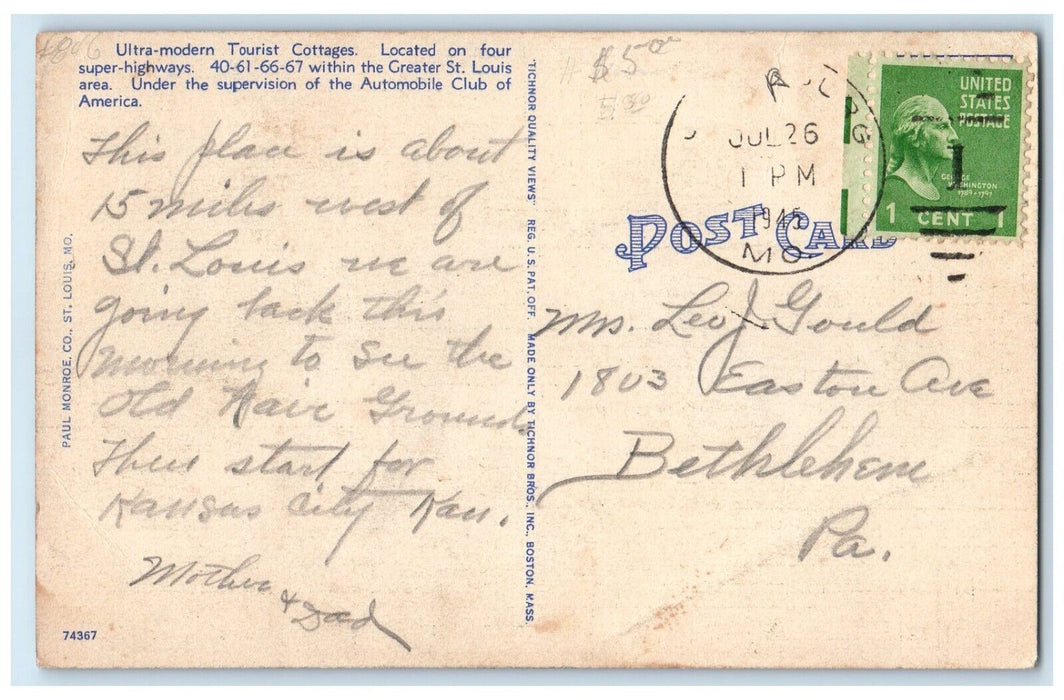 Ultra-modern Tourist Cottages. Located on four
super-highways. 40-61-66-67 within the Greater St. Louis
area. Under the supervision of the Automobile Club of
America.
This place is about
15 miles west of
St. Louis we are
going back this
morning to see the
Old Fair Ground.
Then start for
Kansas City Kan.
Mother
& Dad
74367
PAUL MONROE. CO., ST. LOUIS, MO.
"TICHNOR QUALITY VIEWS" REG. U. S. PAT. OFF. MADE ONLY BY TICHNOR BROS., INC., BOSTON, MASS.
$5
JUL 26
1 PM
1945
MO.
UNITED
STATES
POSTAGE
GEORGE
WASHINGTON
1789-1797
1 CENT 1
POST CARD
Mrs. Leo J Gould
1803 Easton Ave
Bethlehem
Pa.